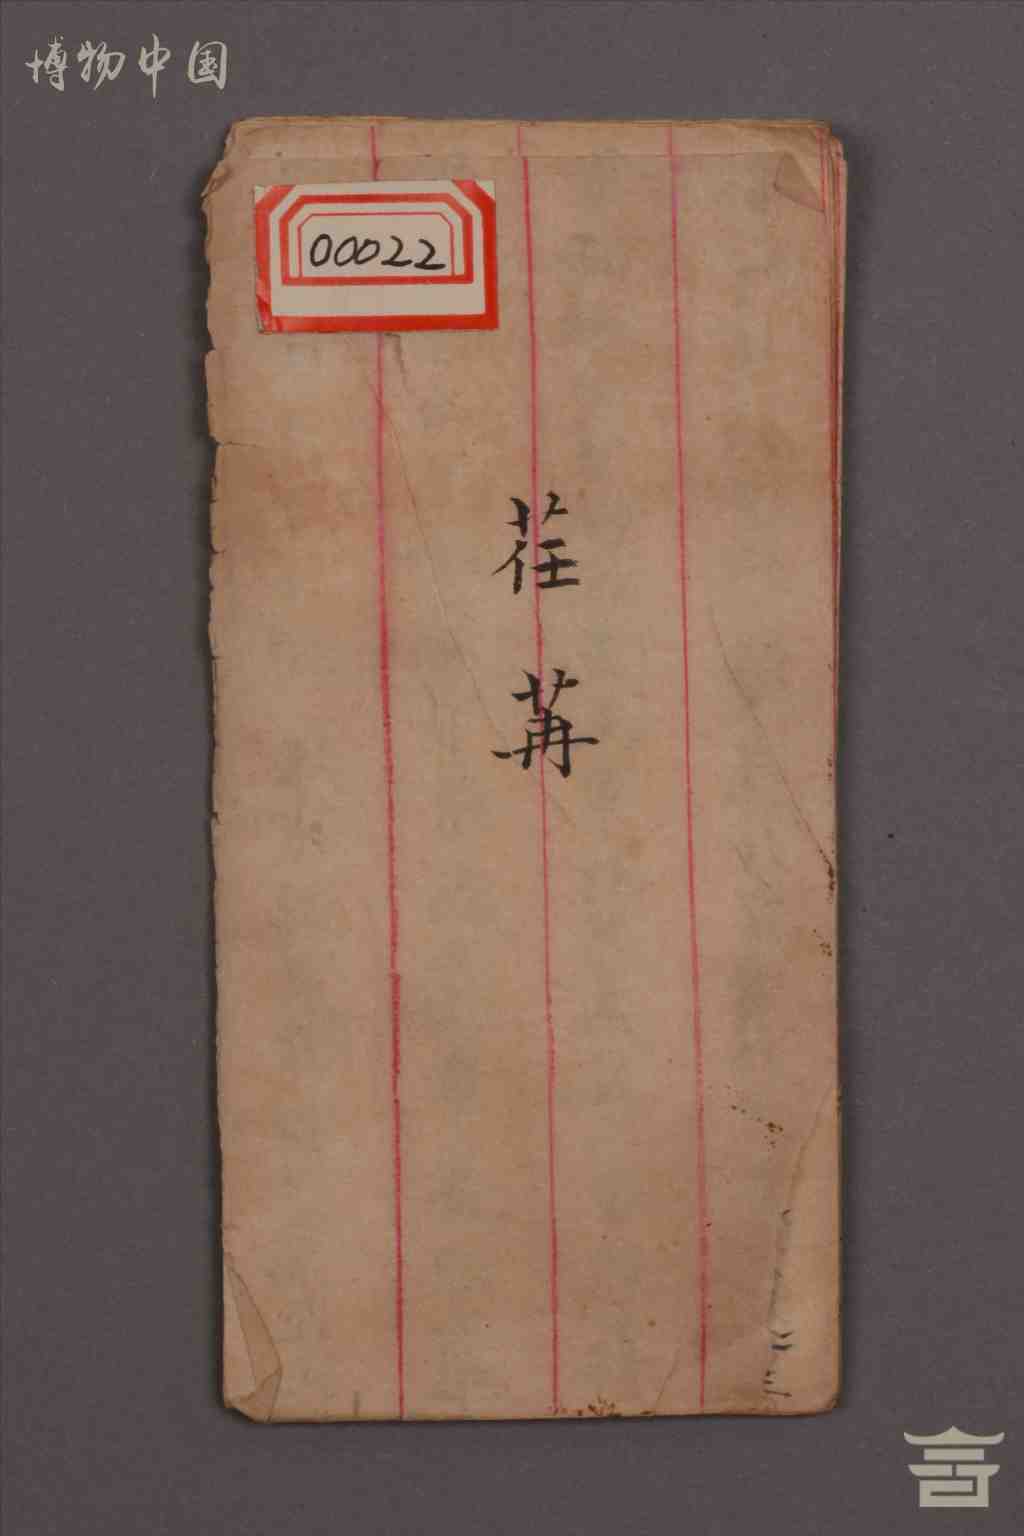 博物中国
00022
荏
苒